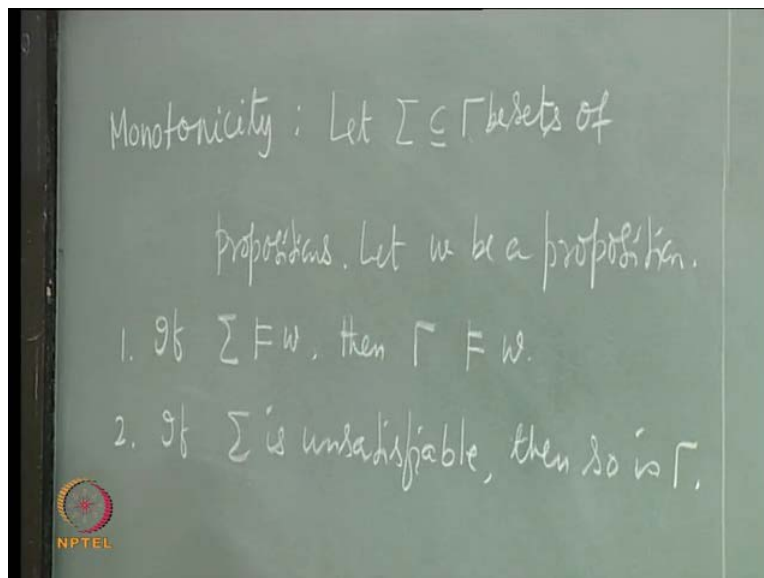 Monotonicity : Let Σ ⊆ Γ be sets of
propositions. Let w be a proposition.
1. If Σ ⊨ w, then Γ ⊨ w.
2. If Σ is unsatisfiable, then so is Γ.
NPTEL